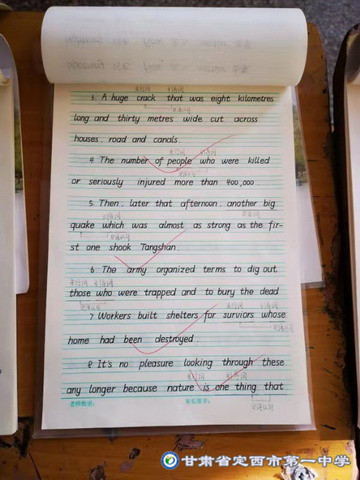 3. A huge crack that was eight kilometres
long and thirty metres wide cut across
houses, road and canals.
4. The number of people who were killed
or seriously injured more than 400,000.
5. Then, later that afternoon, another big
quake which was almost as strong as the fir-
st one shook Tangshan.
6. The army organized terms to dig out
those who were trapped and to bury the dead
7. Workers built shelters for surviors whose
home had been destroyed.
8. It's no pleasure looking through these
any longer because nature is one thing that
甘肃省定西市第一中学